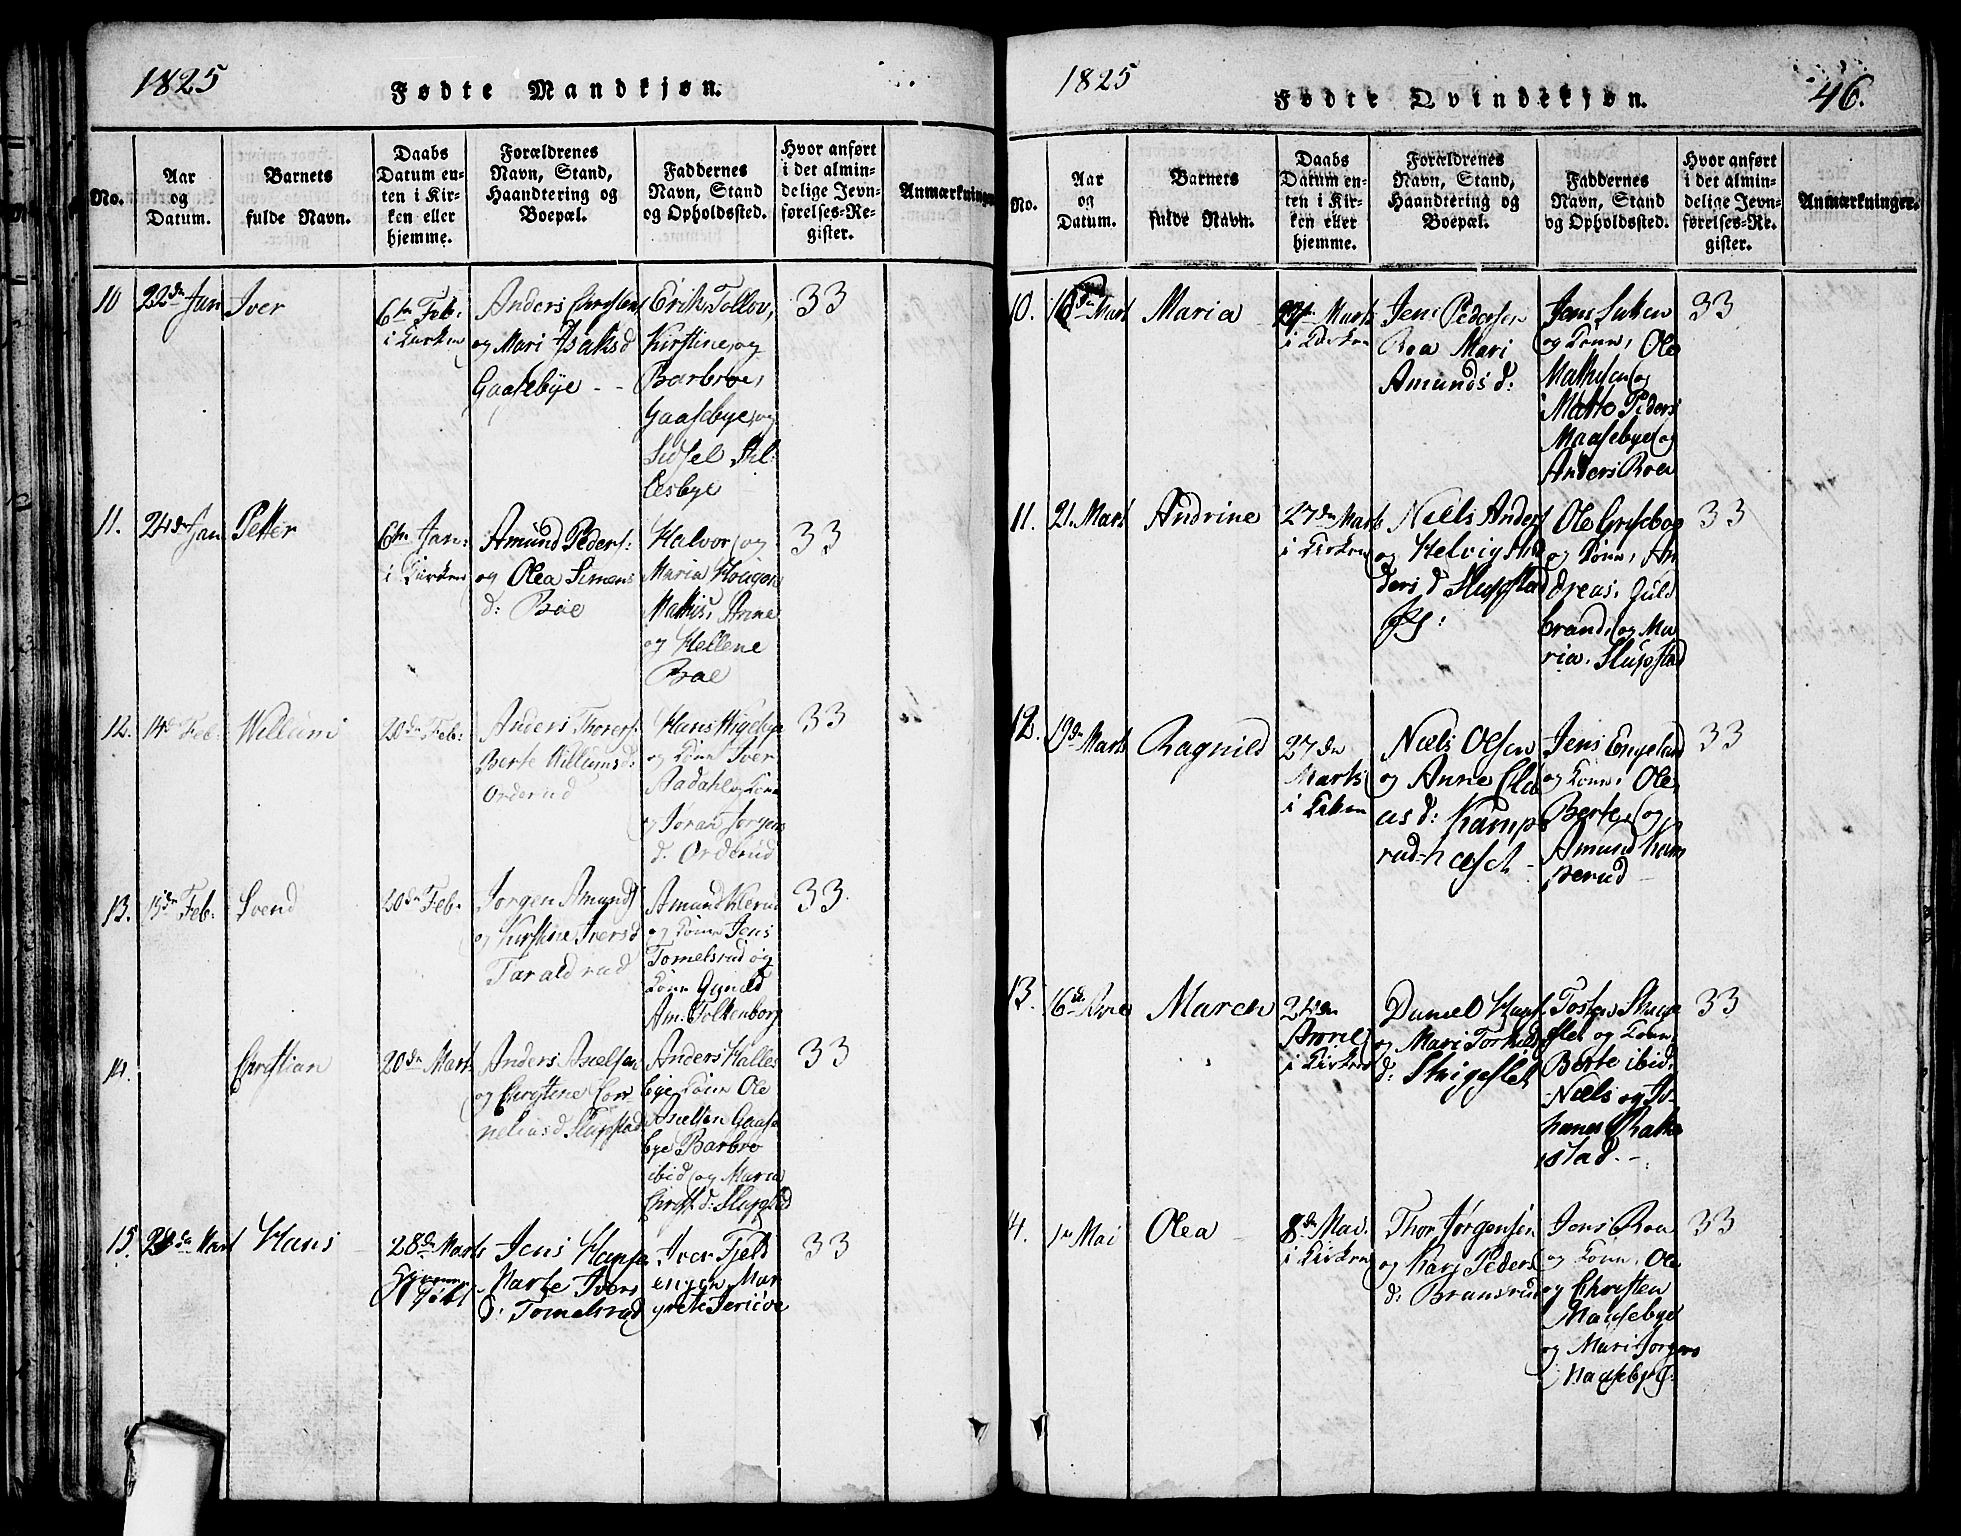 1825
Fødte Mandkjøn.
No.
Aar
og
Datum.
Barnets
fulde Navn.
Daabs
Datum en-
ten i Kir-
ken eller
hjemme.
Forældrenes
Navn, Stand,
Haandtering og
Boepæl.
Faddernes
Navn, Stand
og Opholdssted.
Hvor anført
i det almin-
delige Jevn-
førelses-Re-
gister.
Anmærkninger
10
22de Jan
Iver
6te Feb:
i Kirken
Anders Christens
og Mari Isaksd
Gaasebye
Erik Tollov,
Kirstine og
Barbroe,
Gaasebye, og
Sidsel
33
11.
24de Jan
Petter
6te Jan:
i Kirken
Amund Peders:
og Olea Simens
d: Boe
Halvor og
Maria
Mathis, Anne
og Hellene
Boe
33
12.
14d Feb:
Willum
20de Feb:
Anders Thorers:
Berte Willumsd:
Orderud
Hans
og Kone Iver
Aadahl og Kone
og Jøran Jorgens
d. Orderud
33
13.
15de Feb:
Svend
20de Feb:
Jorgen Amunds
og Kirstine Iversd
Taraldrud
Amund
og Kone Jens
Tomelsrud og
Kone
Am. Folkenborg
33
14.
Christian
20de Marts
Anders Axelsen
og Christine Cor-
neliusd Slupstad
Anders Halles
bye Kone Ole
Axelsen Gaase
bye Barbro
ibid og Maria
Christ. d: Slupstad
33
15.
Mart
Hans
28de Marts
Jens Hanse
Marte Ivers
d: Tomelsrud
Iver Fjeld
engen Mar
grete
33
1825
Fødte Qvindekjøn.
46.
No.
Aar
og
Datum.
Barnets
fulde Navn.
Daabs
Datum en-
ten i Kir-
ken eller
hjemme.
Forældrenes
Navn, Stand,
Haandtering og
Boepæl.
Faddernes
Navn, Stand
og Opholdssted.
Hvor anført
i det almin-
delige Jevn-
førelses-Re-
gister.
Anmærkninger.
10.
Mart
Maria
27de Marts
i Kirken
Jens Pedersen
Roa Mari
Amunds d:
Jens
og Kone, Ole
Mathisen og
Peders
Maasebye og
Anders Roa
33
11.
21. Mart
Andrine
27de Marts
i Kirken
Niels Anders
og Helvig An
ders d Slupstad
Ole
og Kone, An
dreas, Guld
brand, og Ma
ria, Slupstad
33
12.
19de Marts
Ragnild
27de
Marts
i Kirken
Niels Olsen
og Anne Cla
as d: Kamp
rud
Jens Engeland
og Kone, Ole,
Berte, og
Amund Kam
perud
33
13.
16de
Maren
24de
April
i Kirken
Daniel Hans
og Mari
d: Skigeslet
slet og Kone
Berte ibid,
Niels og Jo-
hanes
stad.
33
4.
1n Mai
Olea
8de Mai
i Kirken
Thor Jørgensen
og Kari Peders
d: Bransrud
Jens Roa
og Kone, Ole
og Christen
Maasebye
og Mari Jorgens
Maasebye
33